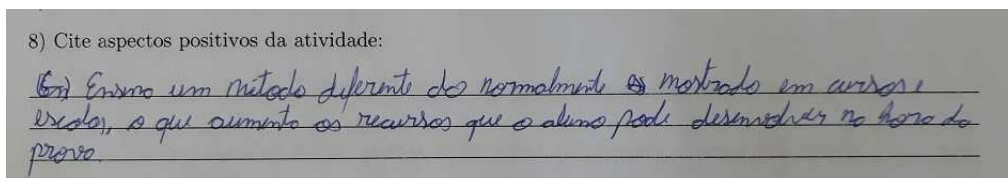 8) Cite aspectos positivos da atividade:
Ensina um método diferente do normalmente mostrado em cursos e
escolas, o que aumenta os recursos que o aluno pode desenvolver na hora da
prova.